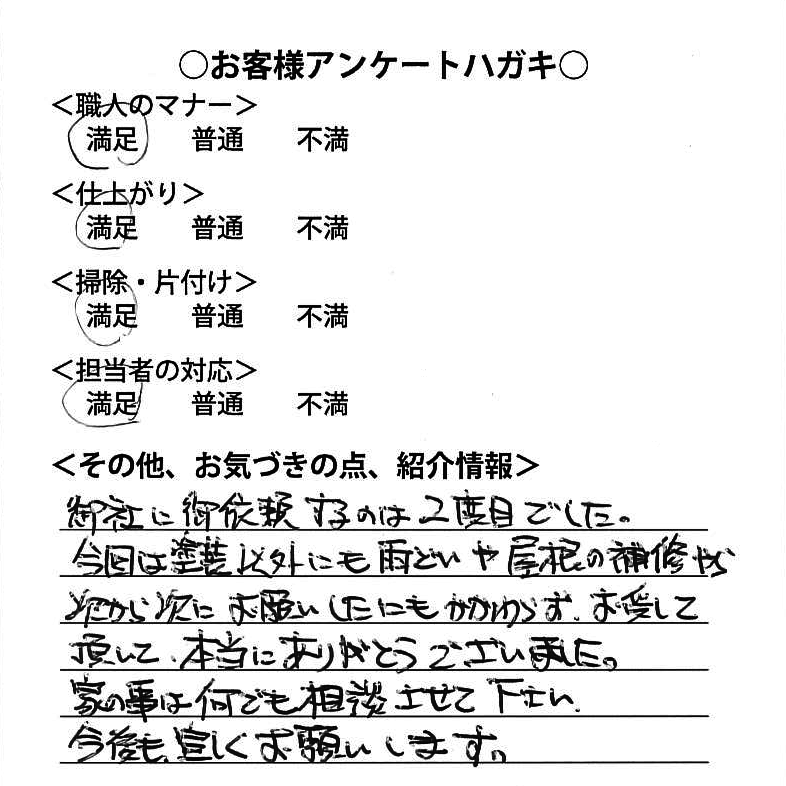 ○お客様アンケートハガキ○
＜職人のマナー＞
満足 普通 不満
＜仕上がり＞
満足 普通 不満
＜掃除・片付け＞
満足 普通 不満
＜担当者の対応＞
満足 普通 不満
＜その他、お気づきの点、紹介情報＞
御社に御依頼するのは2度目でした。
今回は塗装以外にも雨どいや屋根の補修やら
次から次にお願いしたにもかかわらず、お受して
頂いて、本当にありがとうございました。
家の事は何でも相談させて下さい、
今後も、宜しくお願いします。